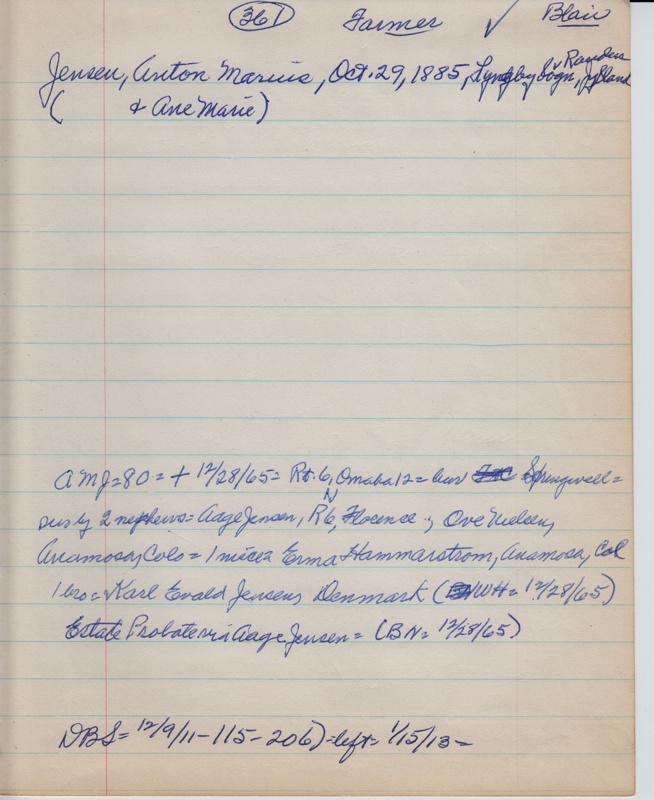 361 Farmer ✓ Blair
Jensen, Anton Marius, Oct. 29, 1885, Lyngby Sogn, Randers, Jylland
( & Ane Marie)
AMJ=80=† 12/28/65= Rt. 6, Omaha 12= bur Springwell=
surv by 2 nephews= Aage Jensen, R6, N Florence; Ove Nielsen,
Anamosa, Colo= 1 niece= Erma Hammarstrom, Anamosa, Col
1 bro= Karl Evald Jensen, Denmark (WH= 12/28/65)
Estate Probate via Aage Jensen= (BN= 12/28/65)
DBS= 12/9/11-115-206)=left= 1/15/13=